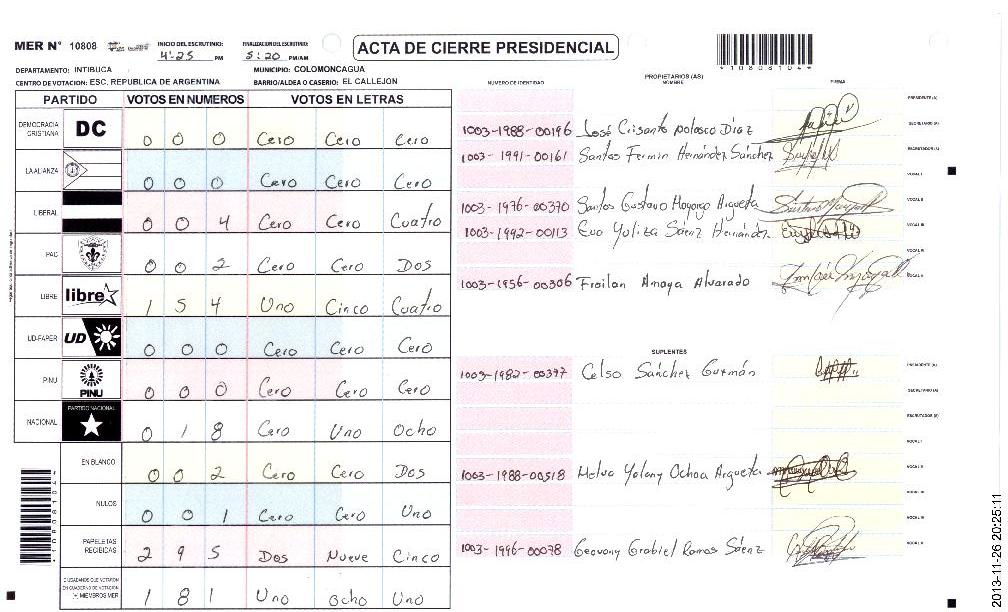 MER N° 10808
INICIO DEL ESCRUTINIO: 4:25 PM
FINALIZACION DEL ESCRUTINIO: 5:20 PM/AM
ACTA DE CIERRE PRESIDENCIAL
*10808104*
DEPARTAMENTO: INTIBUCA
MUNICIPIO: COLOMONCAGUA
CENTRO DE VOTACION: ESC. REPUBLICA DE ARGENTINA
BARRIO/ALDEA O CASERIO: EL CALLEJON
PARTIDO VOTOS EN NUMEROS VOTOS EN LETRAS
DEMOCRACIA CRISTIANA DC 0 0 0 Cero Cero Cero
LA ALIANZA 0 0 0 Cero Cero Cero
LIBERAL 0 0 4 Cero Cero Cuatro
PAC 0 0 2 Cero Cero Dos
LIBRE libre 1 5 4 Uno Cinco Cuatro
UD-FAPER UD 0 0 0 Cero Cero Cero
PINU PINU 0 0 0 Cero Cero Cero
NACIONAL PARTIDO NACIONAL 0 1 8 Cero Uno Ocho
EN BLANCO 0 0 2 Cero Cero Dos
NULOS 0 0 1 Cero Cero Uno
PAPELETAS RECIBIDAS 2 9 5 Dos Nueve Cinco
CIUDADANOS QUE VOTARON EN CUADERNO DE VOTACION (+) MIEMBROS MER 1 8 1 Uno Ocho Uno
*10808104*
NUMERO DE IDENTIDAD PROPIETARIOS (AS) NOMBRE FIRMA
PRESIDENTE (A)
1003-1988-00196 José Crisanto Polasco Diaz SECRETARIO (A)
1003-1991-00161 Santos Fermin Hernández Sánchez ESCRUTADOR (A)
VOCAL I
1003-1976-00370 Santos Gustavo Argueta VOCAL II
1003-1992-00113 Eva Yuliza Sáenz Hernández VOCAL III
VOCAL IV
1003-1956-00306 Froilan Amaya Alvarado VOCAL V
SUPLENTES
1003-1982-00397 Celso Sánchez Guzmán PRESIDENTE (A)
SECRETARIO (A)
ESCRUTADOR (A)
VOCAL I
1003-1988-00518 Melva Yolany Ochoa Argueta VOCAL II
VOCAL III
VOCAL IV
1003-1996-00078 Geovany Grabiel Ramos Sáenz VOCAL V
2013-11-26 20:25:11